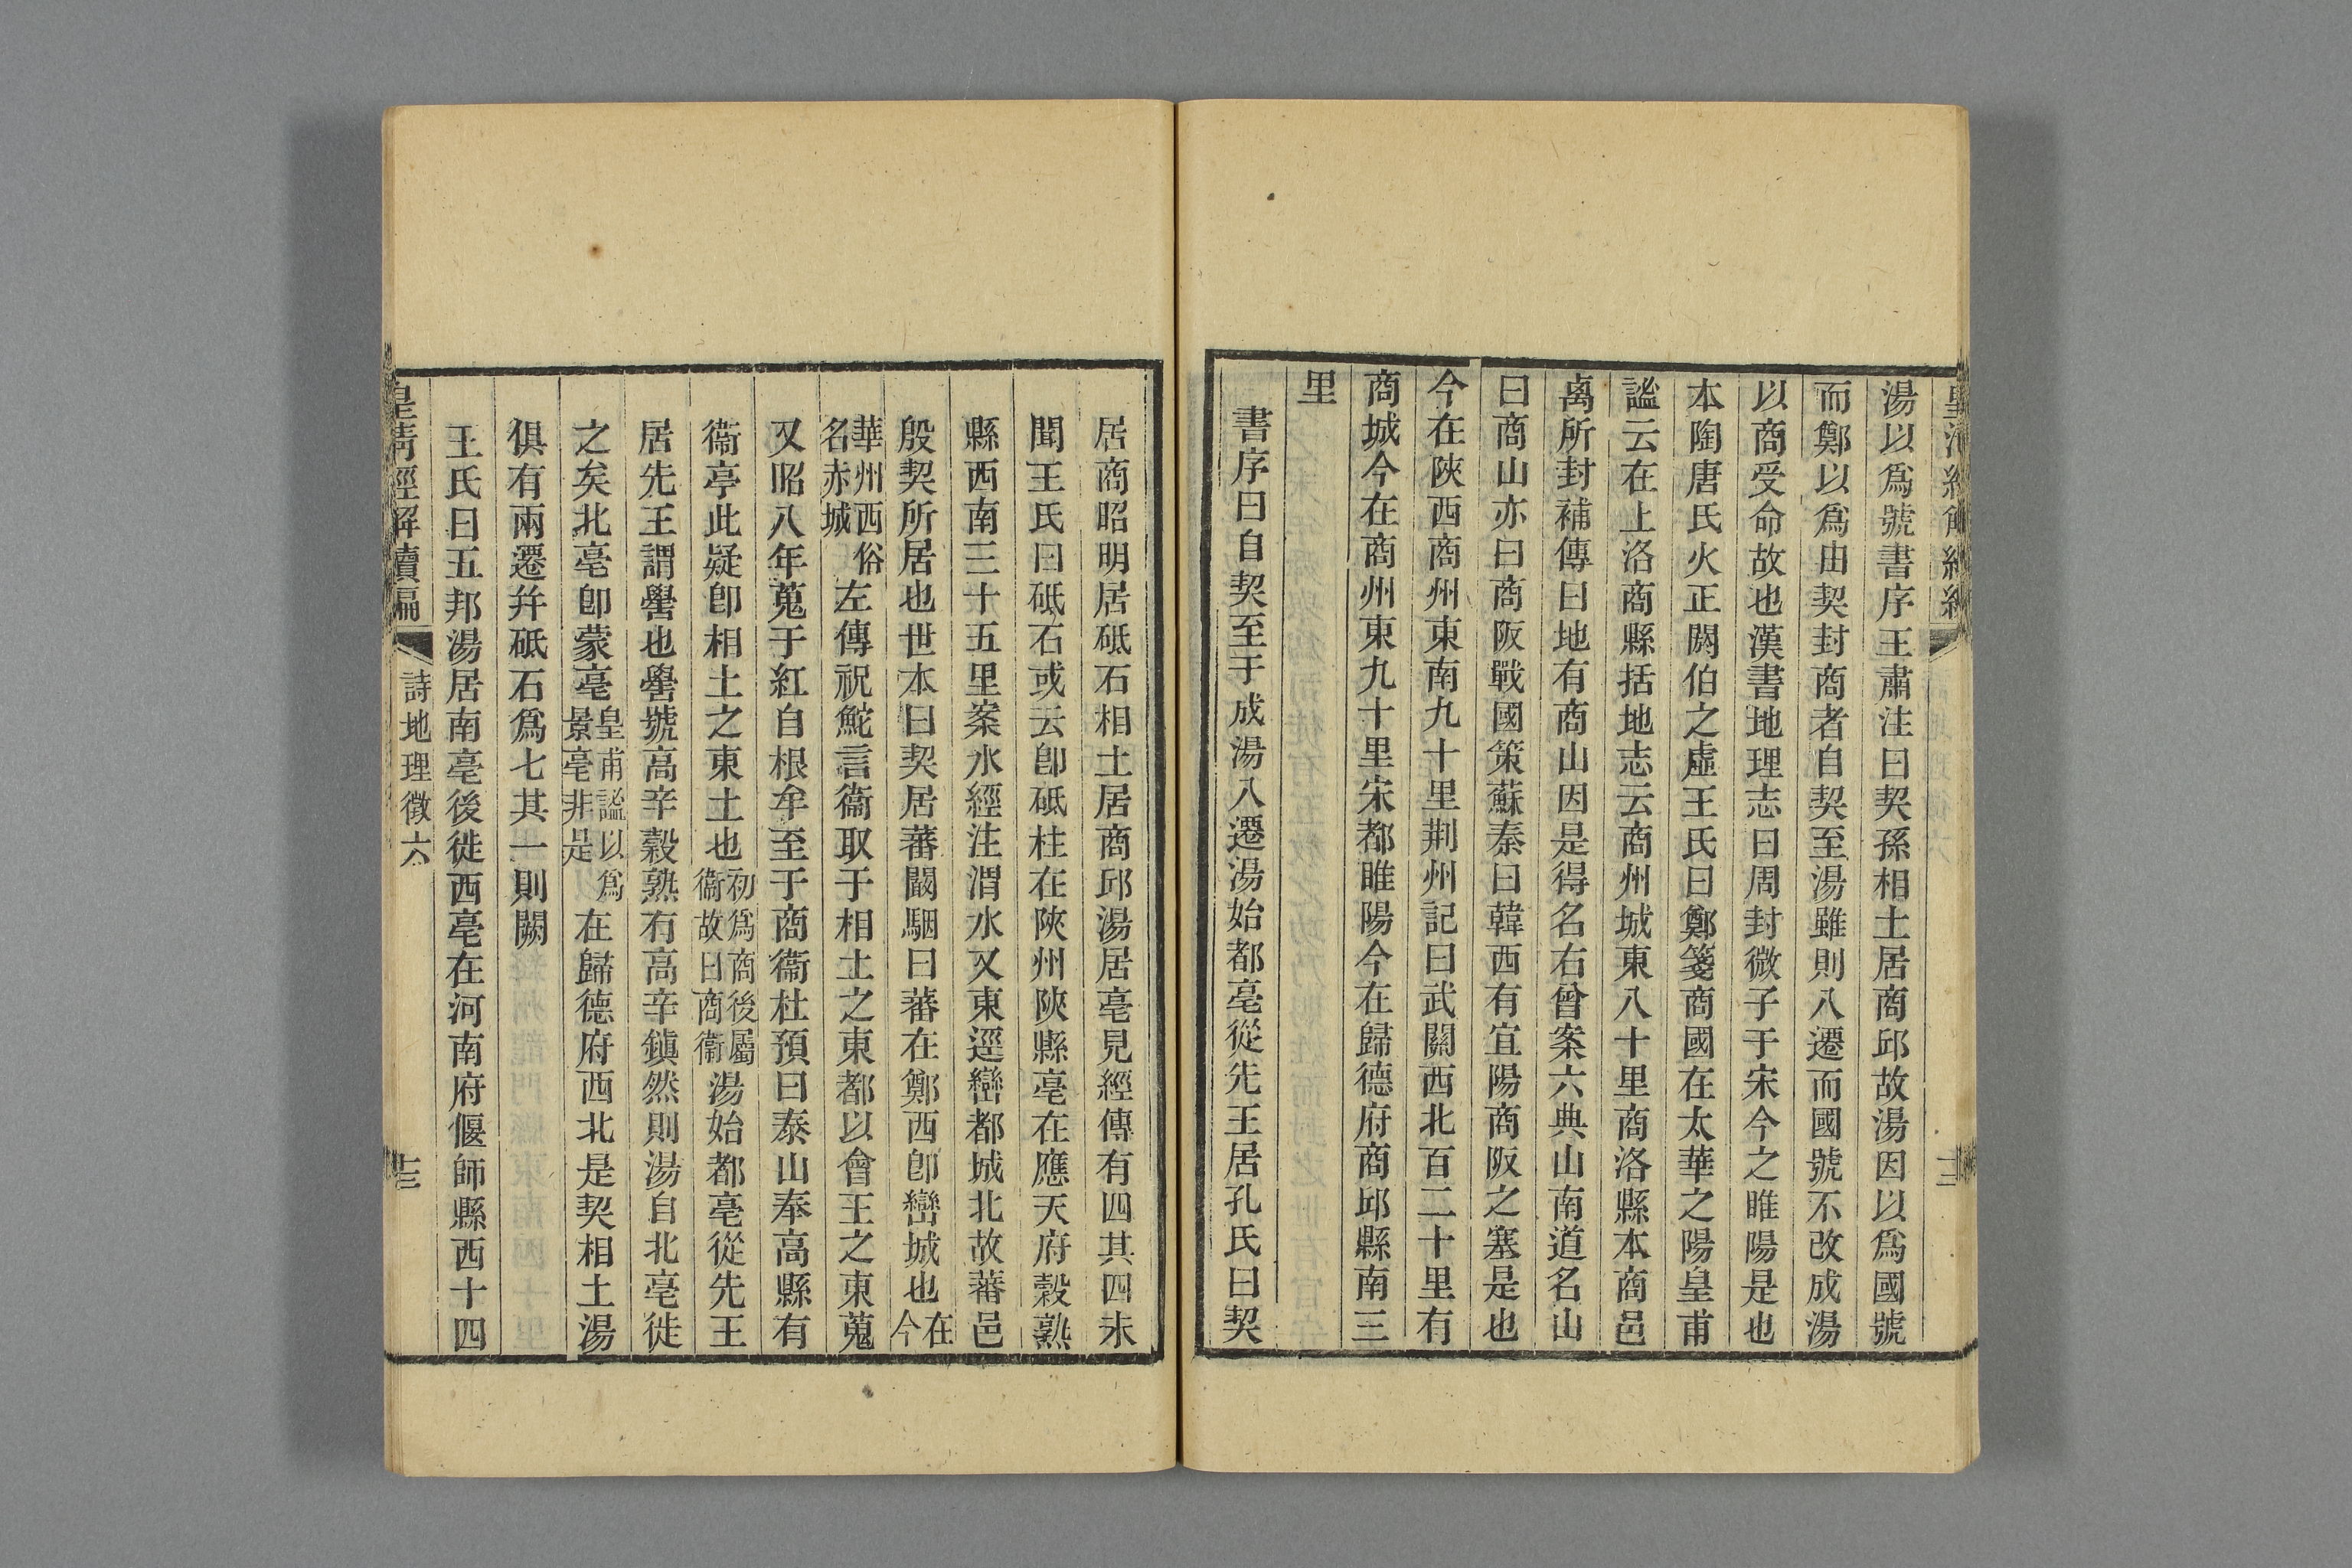 湯以爲號書序王肅注曰契孫相土居商邱故湯因以爲國號
而鄭以爲由契封商者自契至湯雖則八遷而國號不改成湯
以商受命故也漢書地理志曰周封微子于宋今之睢陽是也
本陶唐氏火正閼伯之虛王氏曰鄭箋商國在太華之陽皇甫
謐云在上洛商縣括地志云商州城東八十里商洛縣本商邑
禼所封補傳曰地有商山因是得名右曾案六典山南道名山
曰商山亦曰商阪戰國策蘇秦曰韓西有宜陽商阪之塞是也
今在陝西商州東南九十里荆州記曰武關西北百二十里有
商城今在商州東九十里宋都睢陽今在歸德府商邱縣南三
里
書序曰自契至于成湯八遷湯始都亳從先王居孔氏曰契
居商昭明居砥石相土居商邱湯居亳見經傳有四其四未
聞王氏曰砥石或云卽砥柱在陝州陝縣亳在應天府穀熟
縣西南三十五里案水經注渭水又東逕巒都城北故蕃邑
殷契所居也世本曰契居蕃闞駰曰蕃在鄭西卽巒城也今在
華州西俗名赤城左傳祝鮀言衞取于相土之東都以會王之東蒐
又昭八年蒐于紅自根牟至于商衞杜預曰泰山奉高縣有
衞亭此疑卽相土之東土也初爲商後屬衞故曰商衞湯始都亳從先王
居先王謂嚳也嚳號高辛穀熟有高辛鎮然則湯自北亳徙
之矣北亳卽蒙亳皇甫謐以爲景亳非是在歸德府西北是契相土湯
俱有兩遷幷砥石爲七其一則闕
王氏曰五邦湯居南亳後徙西亳在河南府偃師縣西十四
皇淸經解續編
詩地理徵六
十三